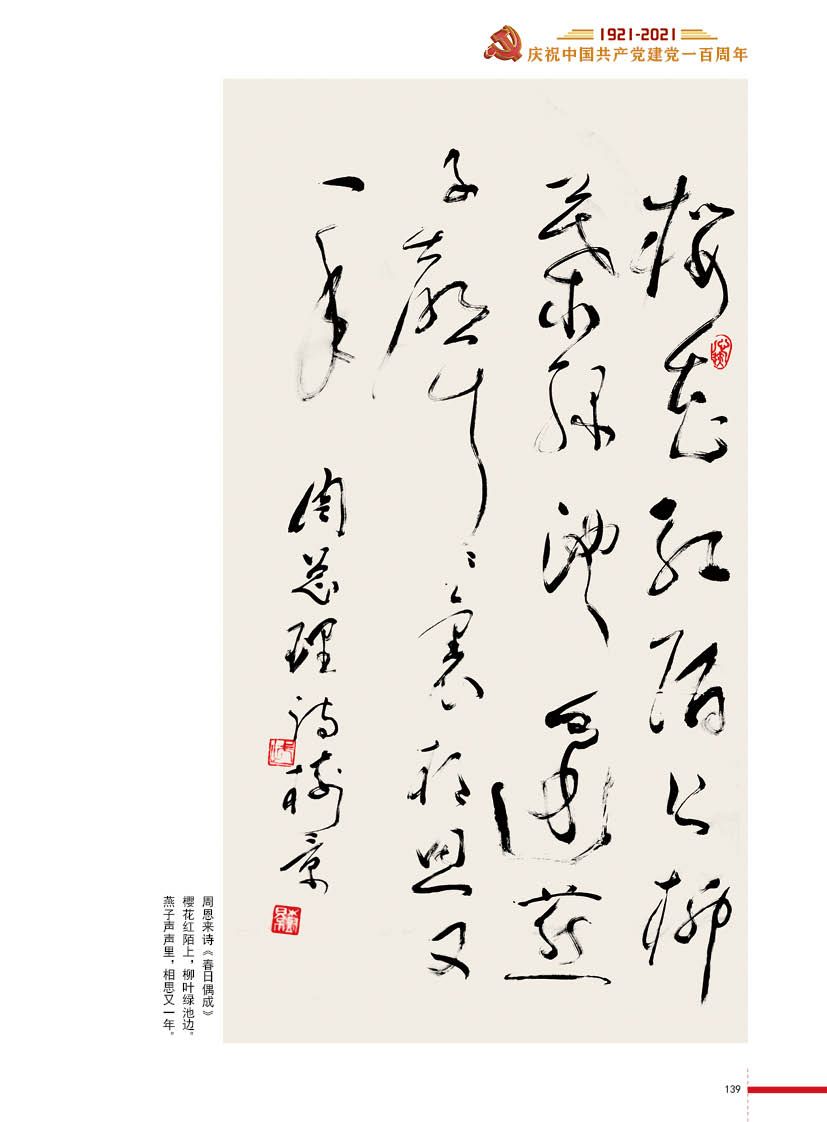 1921-2021
庆祝中国共产党建党一百周年
櫻花红陌上柳
葉绿池邊燕
子聲声ミ裏相思又
一年 周总理诗樹景
周恩来诗《春日偶成》
樱花红陌上，柳叶绿池边。
燕子声声里，相思又一年。
139